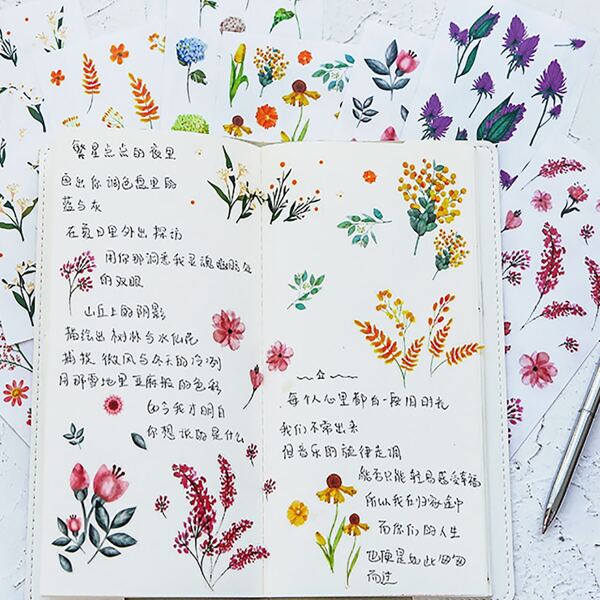 繁星点点的夜里
画出你调色盘里的
蓝与灰
在夏日里外出探访
用你那洞悉我灵魂幽暗处
的双眼
山丘上的阴影
描绘出树林与水仙花
捕捉微风与冬天的冷冽
用那雪地里亚麻般的色彩
如今我才明白
你想说的是什么
每个人心里都有一段旧时光
我们不常出来
但音乐的旋律走调
能否只能轻易感受幸福
所以我们归家途中
而你们的人生
也便是如此匆匆
而过